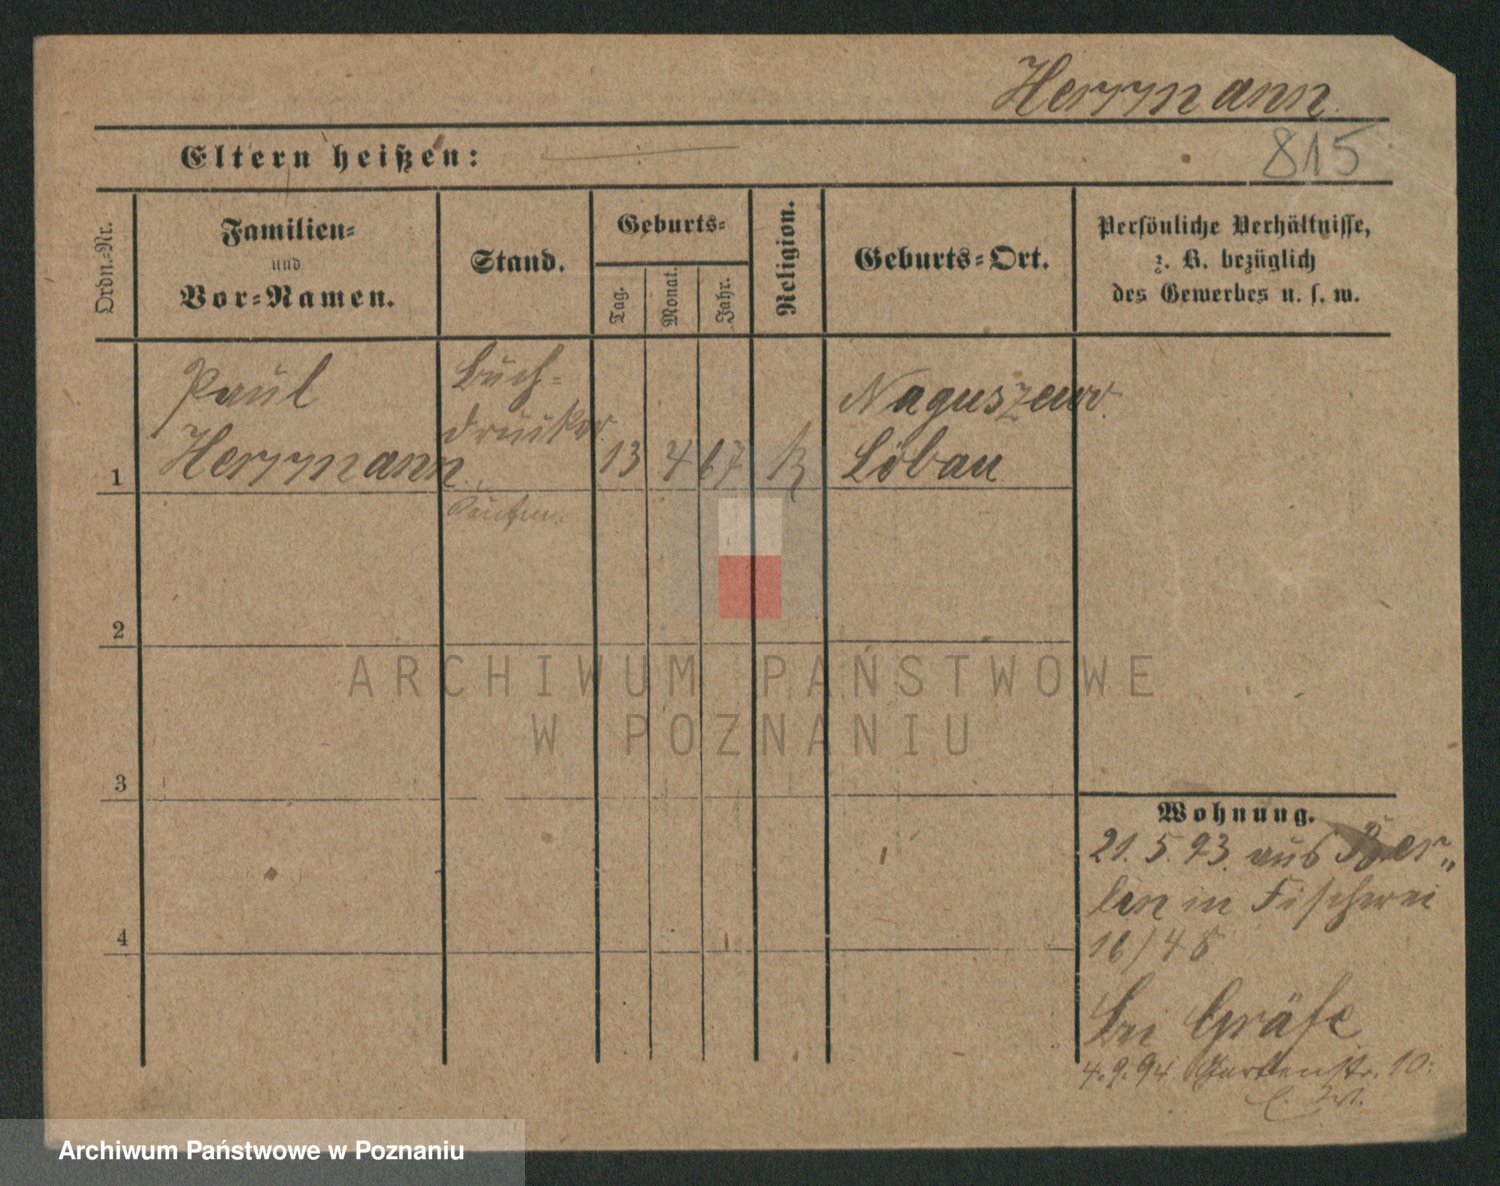 Herrmann.
Eltern heißen:
815
Ordn.-Nr.
Familien-
und
Vor-Namen.
Stand.
Geburts-
Tag.
Monat.
Jahr.
Religion.
Geburts-Ort.
Persönliche Verhältnisse,
z. B. bezüglich
des Gewerbes u. s. w.
Paul
Herrmann
Buch-
drucker
13 4 67
Naguszewo
Löbau
1
2
3
4
ARCHIWUM PAŃSTWOWE
W POZNANIU
Wohnung.
21. 5. 93. aus Ber„
lin in Fischerei
16/48
bei Gräfe
4.9.94 Gartenstr. 10.
Archiwum Państwowe w Poznaniu